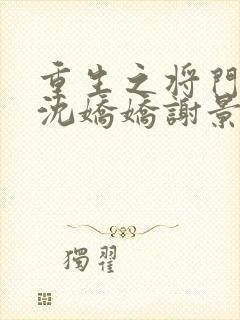 重生之将門
沈嬌嬌謝景
獨翟